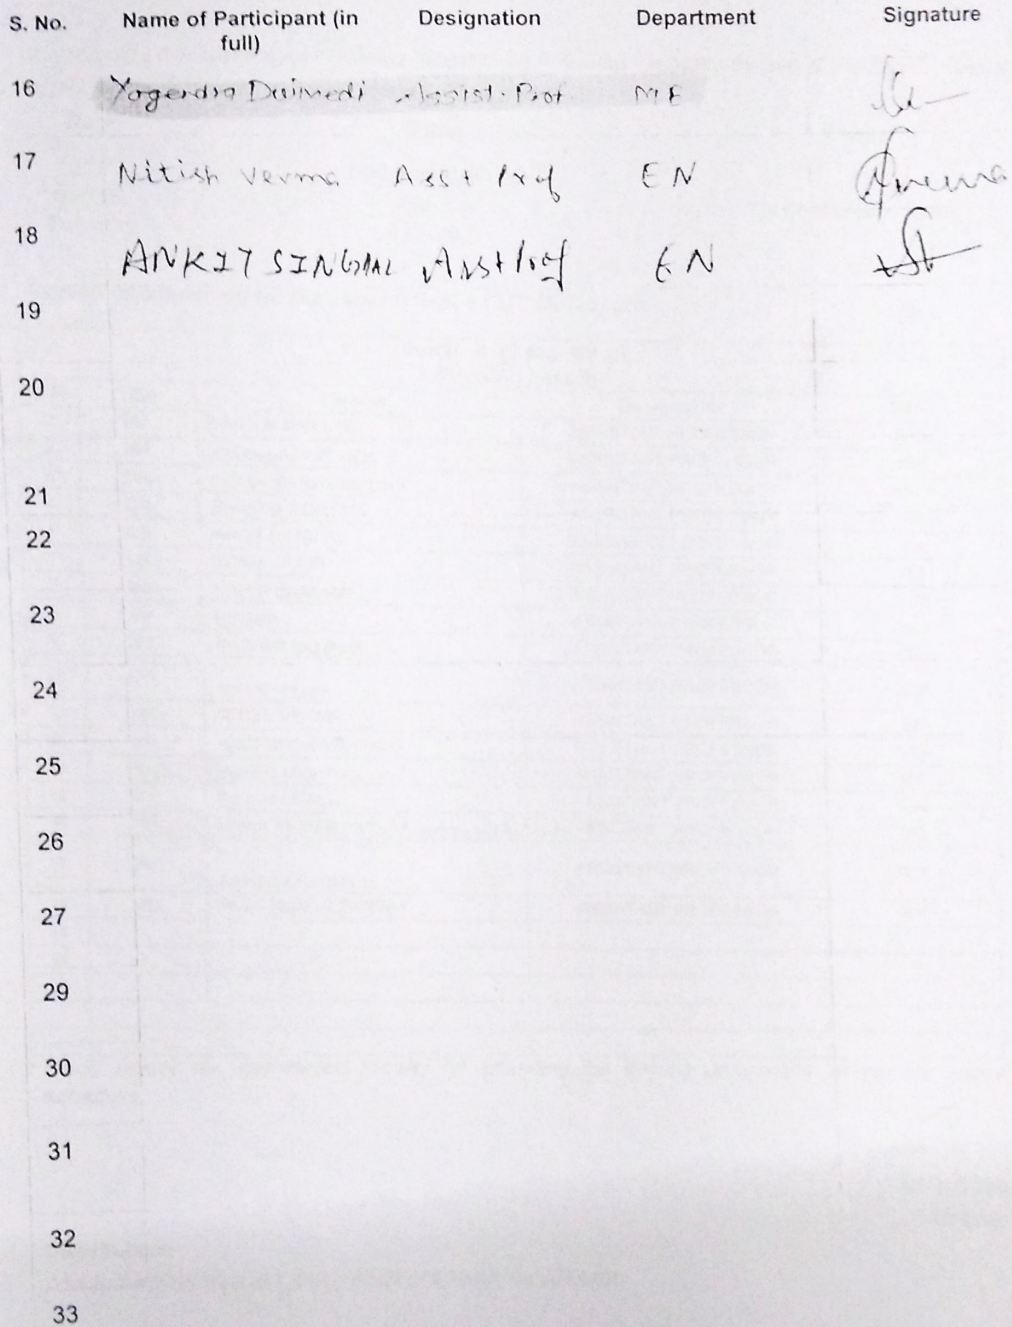 S. No. Name of Participant (in full) Designation Department Signature
16 Yogendra Dwivedi Assist. Prof ME
17 Nitish Verma Asst Prof EN
18 ANKIT SINGHAL Asst Prof EN
19
20
21
22
23
24
25
26
27
29
30
31
32
33